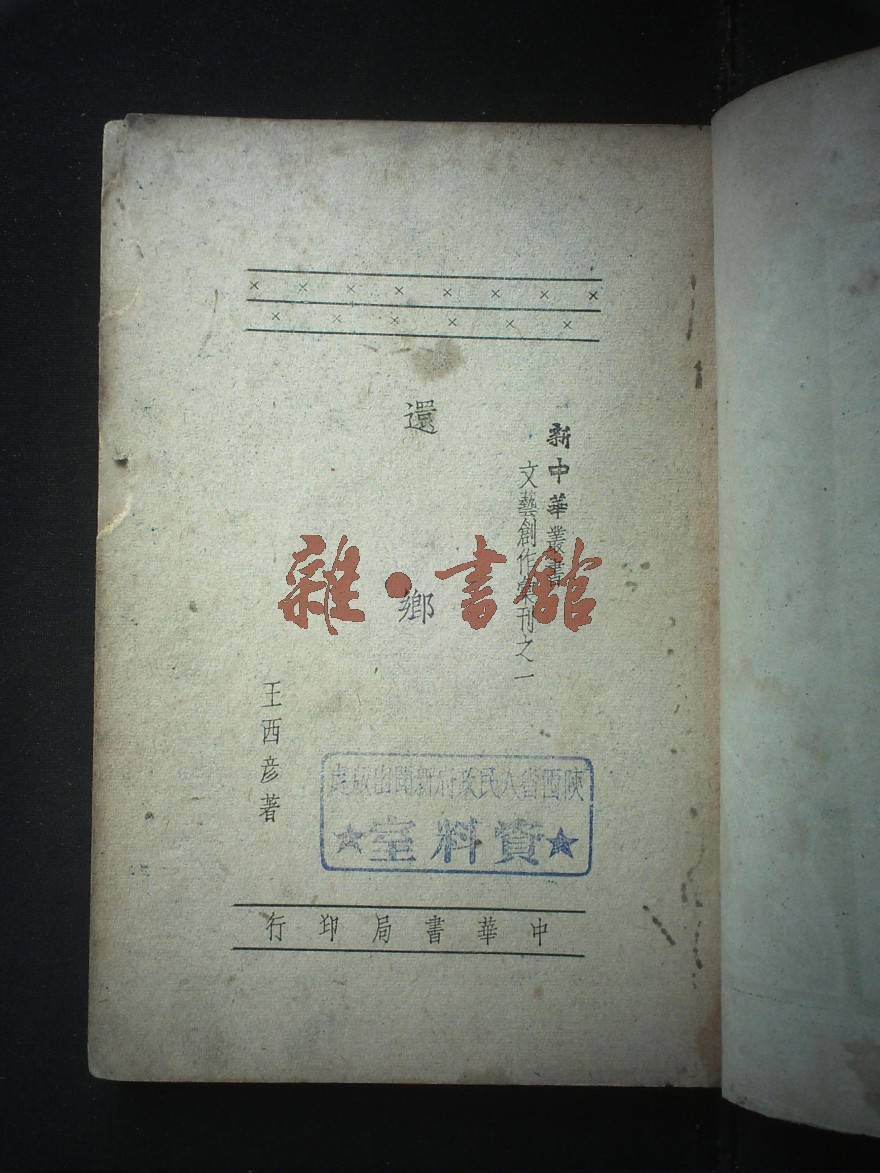 新中華叢書
文藝創作彙刊之一
還鄉
王西彦著
中華書局印行
陝西省人民政府新聞出版處
★資料室★
雜·書館